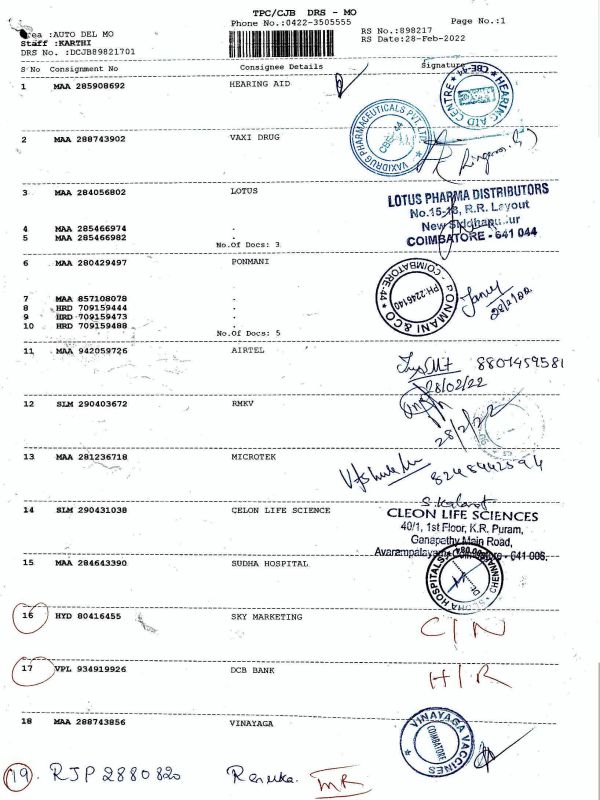 TPC/CJB DRS - MO
Phone No.:0422-3505555
Page No.:1
Area :AUTO DEL MO
Staff :KARTHI
DRS No. :DCJB89821701
RS No.:898217
RS Date:28-Feb-2022
S No Consignment No Consignee Details Signature
1 MAA 285908692 HEARING AID
HEARING AID CENTRE ★ CBE-44 ★
2 MAA 288743902 VAXI DRUG
VAXIDRUG PHARMACEUTICALS PVT. LTD. CBE-44
3 MAA 284056802 LOTUS
LOTUS PHARMA DISTRIBUTORS
No.15-18, R.R. Layout
New Siddhapudur
COIMBATORE - 641 044
4 MAA 285466974 .
5 MAA 285466982 .
No.Of Docs: 3
6 MAA 280429497 PONMANI
PONMANI & CO COIMBATORE-44 PH:2246140
28/2/22
7 MAA 857108078 .
8 HRD 709159444 .
9 HRD 709159473 .
10 HRD 709159488 .
No.Of Docs: 5
11 MAA 942059726 AIRTEL
8807459581
28/02/22
12 SLM 290403672 RMKV
28/2/22
13 MAA 281236718 MICROTEK
8248442594
14 SLM 290431038 CELON LIFE SCIENCE
CLEON LIFE SCIENCES
40/1, 1st Floor, K.R. Puram,
Ganapathy Main Road,
Avarampalayam, Coimbatore - 641 006.
15 MAA 284643390 SUDHA HOSPITAL
SUDHA HOSPITALS
16 HYD 80416455 SKY MARKETING C/N
17 VPL 934919926 DCB BANK H/R
18 MAA 288743856 VINAYAGA
VINAYAGA VACCINES COIMBATORE
19. RJP 2880820 Renuka. MR